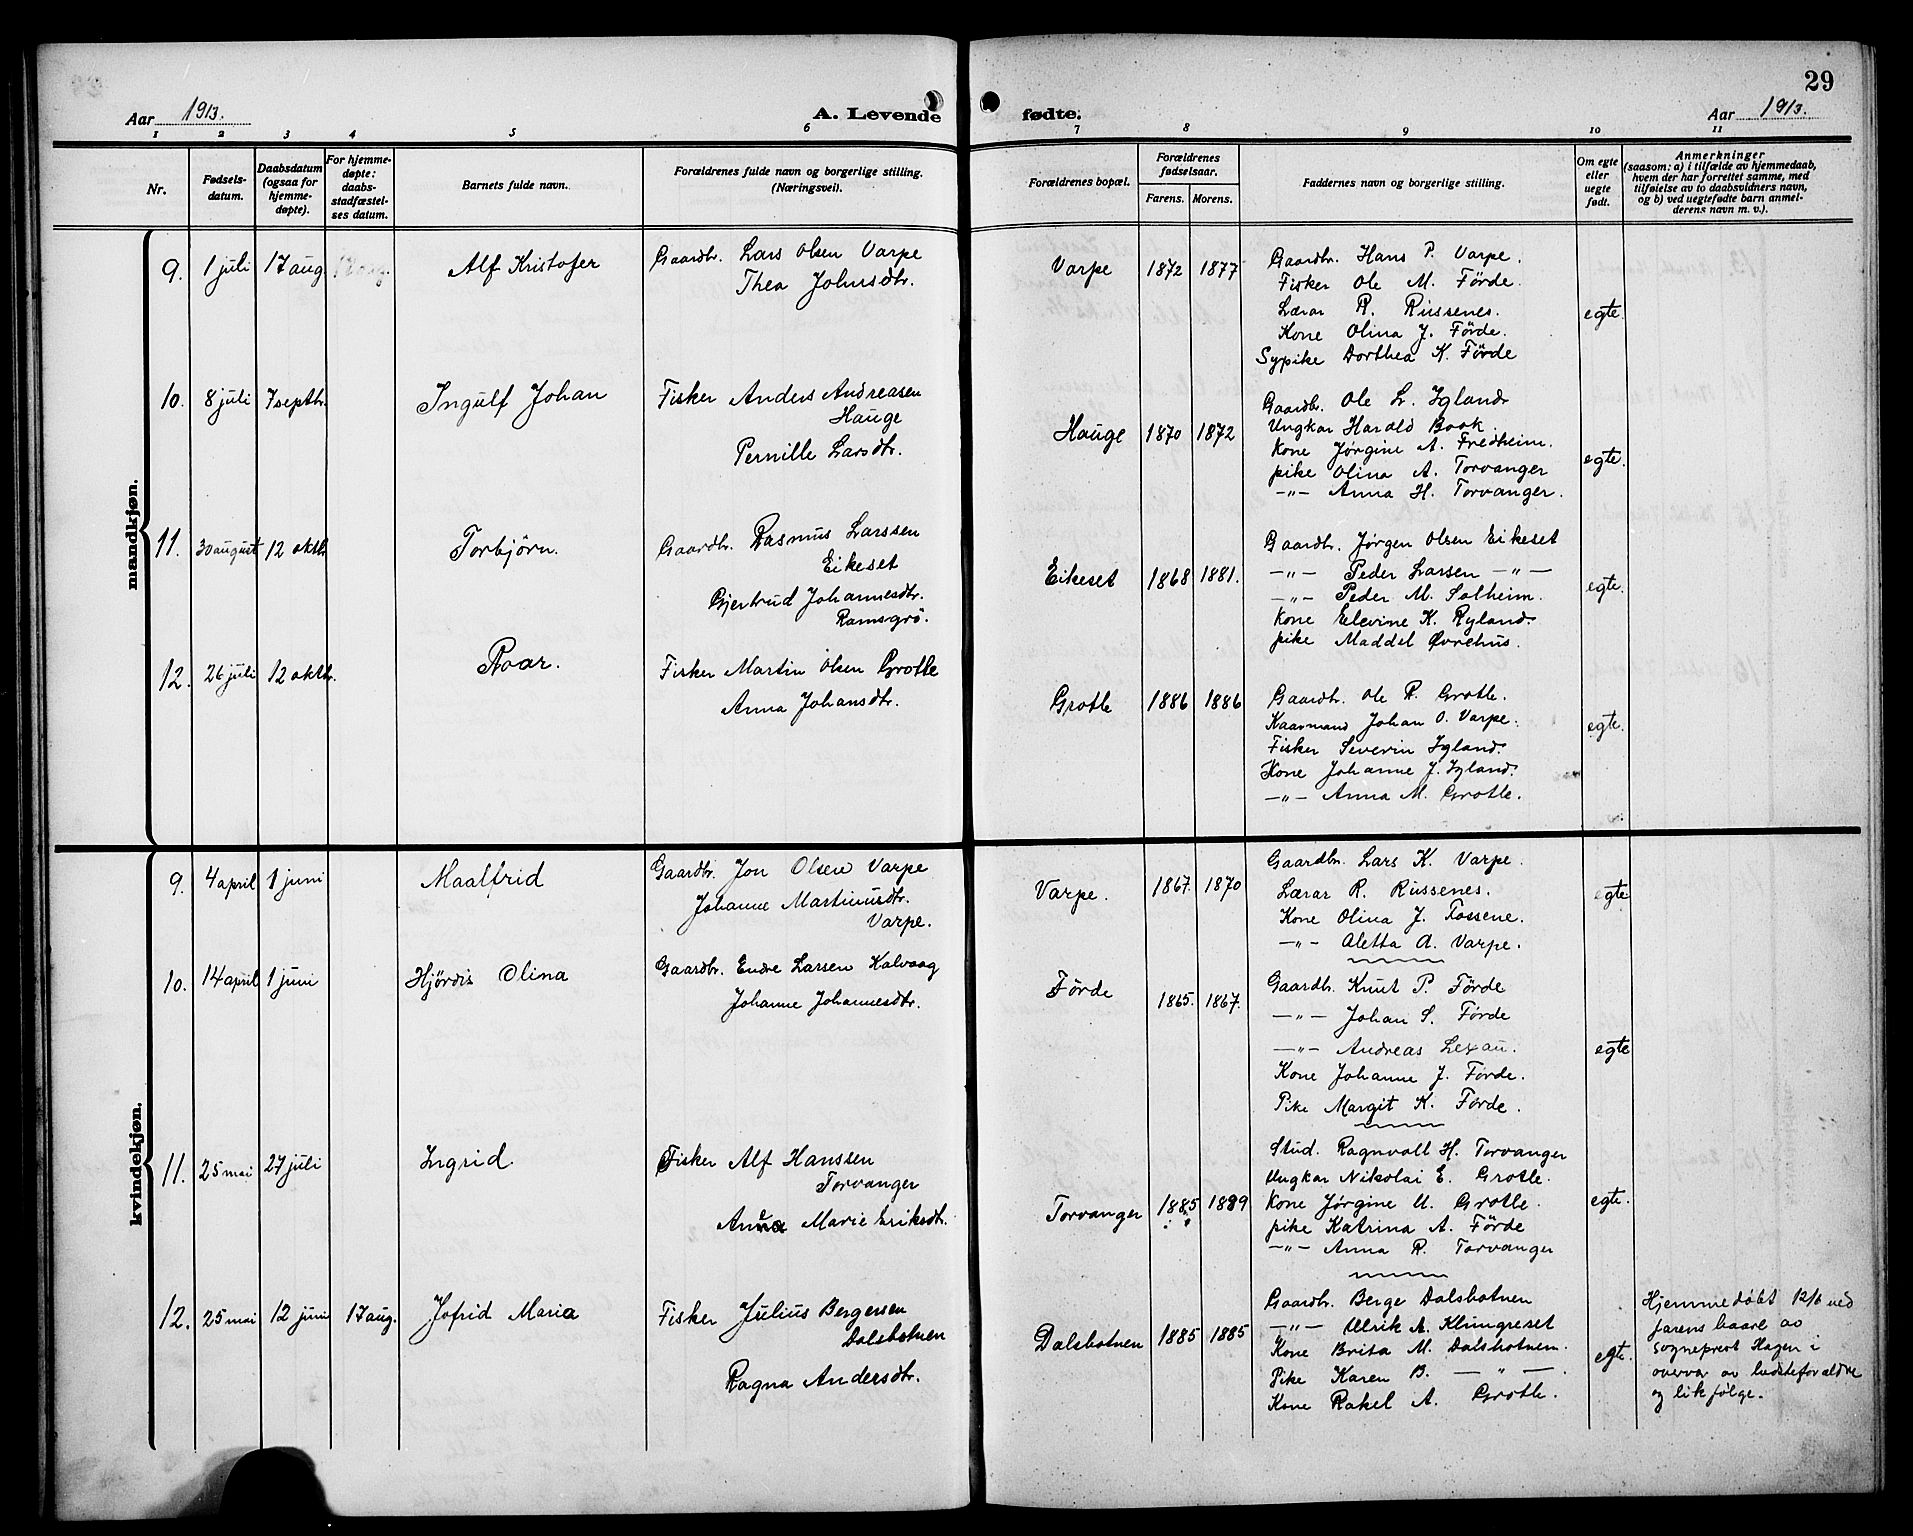 29
Aar 1913.
A. Levende fødte.
Aar 1913.
1 2 3 4 5 6 7 8 9 10 11
Nr.
Fødsels-
datum.
Daabsdatum
(ogsaa for
hjemme-
døpte).
For hjemme-
døpte:
daabs-
stadfæstel-
ses datum.
Barnets fulde navn.
Forældrenes fulde navn og borgerlige stilling.
(Næringsvei).
Forældrenes bopæl.
Forældrenes
fødselsaar.
Farens. Morens.
Faddernes navn og borgerlige stilling.
Om egte
eller
uegte
født.
Anmerkninger
(saasom: a) i tilfælde av hjemmedaab,
hvem der har forrettet samme, med
tilføielse av to daabsvidners navn,
og b) ved uegtefødte barn anmel-
derens navn m. v.).
mandkjøn.
9. 1 juli 17 aug. 17 aug. Alf Kristofer
Gaardbr. Lars Olsen Varpe
Thea Johnsdtr.
Varpe 1872 1877
Gaardbr. Hans P. Varpe.
Fisker Ole M. Förde.
Lærar R. Russenes.
Kone Olina J. Förde.
Sypike Dorthea K. Förde
egte.
10. 8 juli 7 septbr. Ingulf Johan
Fisker Anders Andreasen
Hauge
Pernille Larsdtr.
Hauge 1870 1872
Gaardbr. Ole Lr. Igland
Ungkar Harald Book.
Kone Jørgine A. Fredheim.
pike Olina A. Torvanger
—„— Anna H. Torvanger.
egte.
11. 30 august 12 oktbr. Torbjörn.
Gaardbr. Rasmus Larssen
Eikeset
Gjertrud Johannesdtr.
Ramsgrö.
Eikeset 1868 1881.
Gaardbr. Jörgen Olsen Eikeset
—„— Peder Larsen —„—
—„— Peder M. Solheim.
Kone Elevine K. Ryland.
pike Maddel Øvrehus.
egte.
12. 26 juli 12 oktbr. Roar.
Fisker Martin Olsen Grotle
Anna Johansdtr.
Grotle 1886 1886
Gaardbr. Ole R. Grotle.
Kaarmand Johan O. Varpe.
Fisker Severin Igland.
Kone Johanne J. Igland.
—„— Anna M. Grotle.
egte.
kvindekjøn.
9. 4 april 1 juni Maalfrid
Gaardbr. Jon Olsen Varpe
Johanne Martinusdtr.
Varpe.
Varpe. 1867. 1870
Gaardbr. Lars K. Varpe.
Lærar R. Russenes.
Kone Olina J. Fossene.
—„— Aletta A. Varpe.
egte.
10. 14 april 1 juni Hjördis Olina
Gaardbr. Endre Larsen Kalvaag
Johanne Johannesdtr.
Förde 1865. 1867.
Gaardbr. Knut P. Förde
—„— Johan S. Förde
—„— Andreas Lexau.
Kone Johanne J. Förde.
Pike Margit K. Förde.
egte
11. 25 mai 27 juli Ingrid.
Fisker Alf Hanssen
Torvanger
Anna Marie Eriksdtr.
Torvanger 1885 1889
Stud. Ragnvall H. Torvanger
Ungkar Nikolai E. Grotle.
Kone Jørgine U. Grotle.
pike Katrina A. Förde
—„— Anna R. Torvanger
egte.
12. 25 mai 12 juni 17 aug. Jofrid Maria
Fisker Julius Bergersen
Dalsbotnen
Ragna Andersdtr.
Dalsbotnen 1885 1885
Gaardbr. Berge Dalsbotnen
—„— Ulrik A. Klungreset
Kone Brita M. Dalsbotnen.
Pike Karen B. — „ —
Kone Rakel A. Grotle.
egte.
Hjemmedöbt 12/6 ved
farens baare av
sogneprest Hagen i
overvær av bedsteforældre
og likfölge.